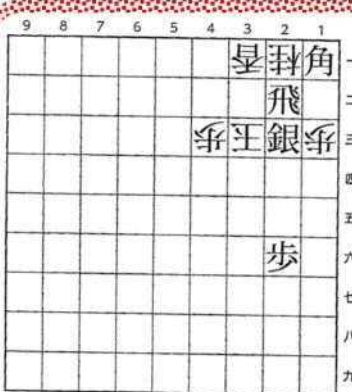 9 8 7 6 5 4 3 2 1
香 桂 角 一
飛 二
歩 玉 銀 歩 三
四
五
歩 六
七
八
九